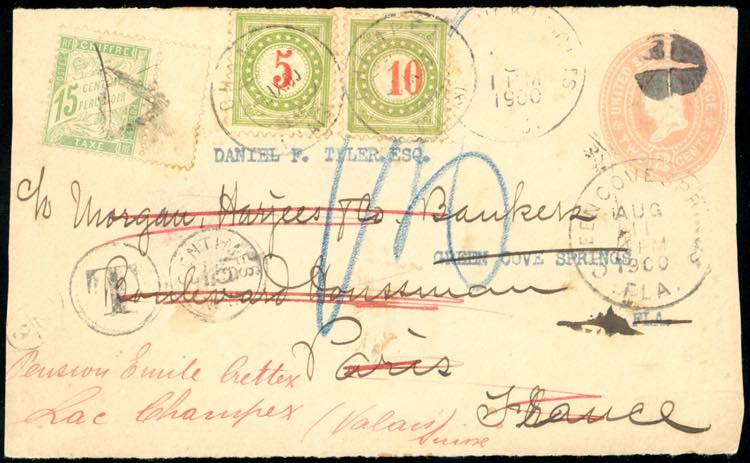 CHIFFRE
POSTES RF
15
CENTIMES
PERCEVOIR
TAXE
5
10
1900
UNITED
TWO CENTS
DANIEL F. TYLER ESQ.
c/o Morgan, Harjes & Co, Bankers
GREEN COVE SPRINGS
GREEN COVE SPRINGS
AUG
11
1900
FLA.
T
CENTIMES
15
Boulevard Houssman
FLA.
Paris
France
Pension Emile Crettex
Lac Champex (Valais)
Suisse